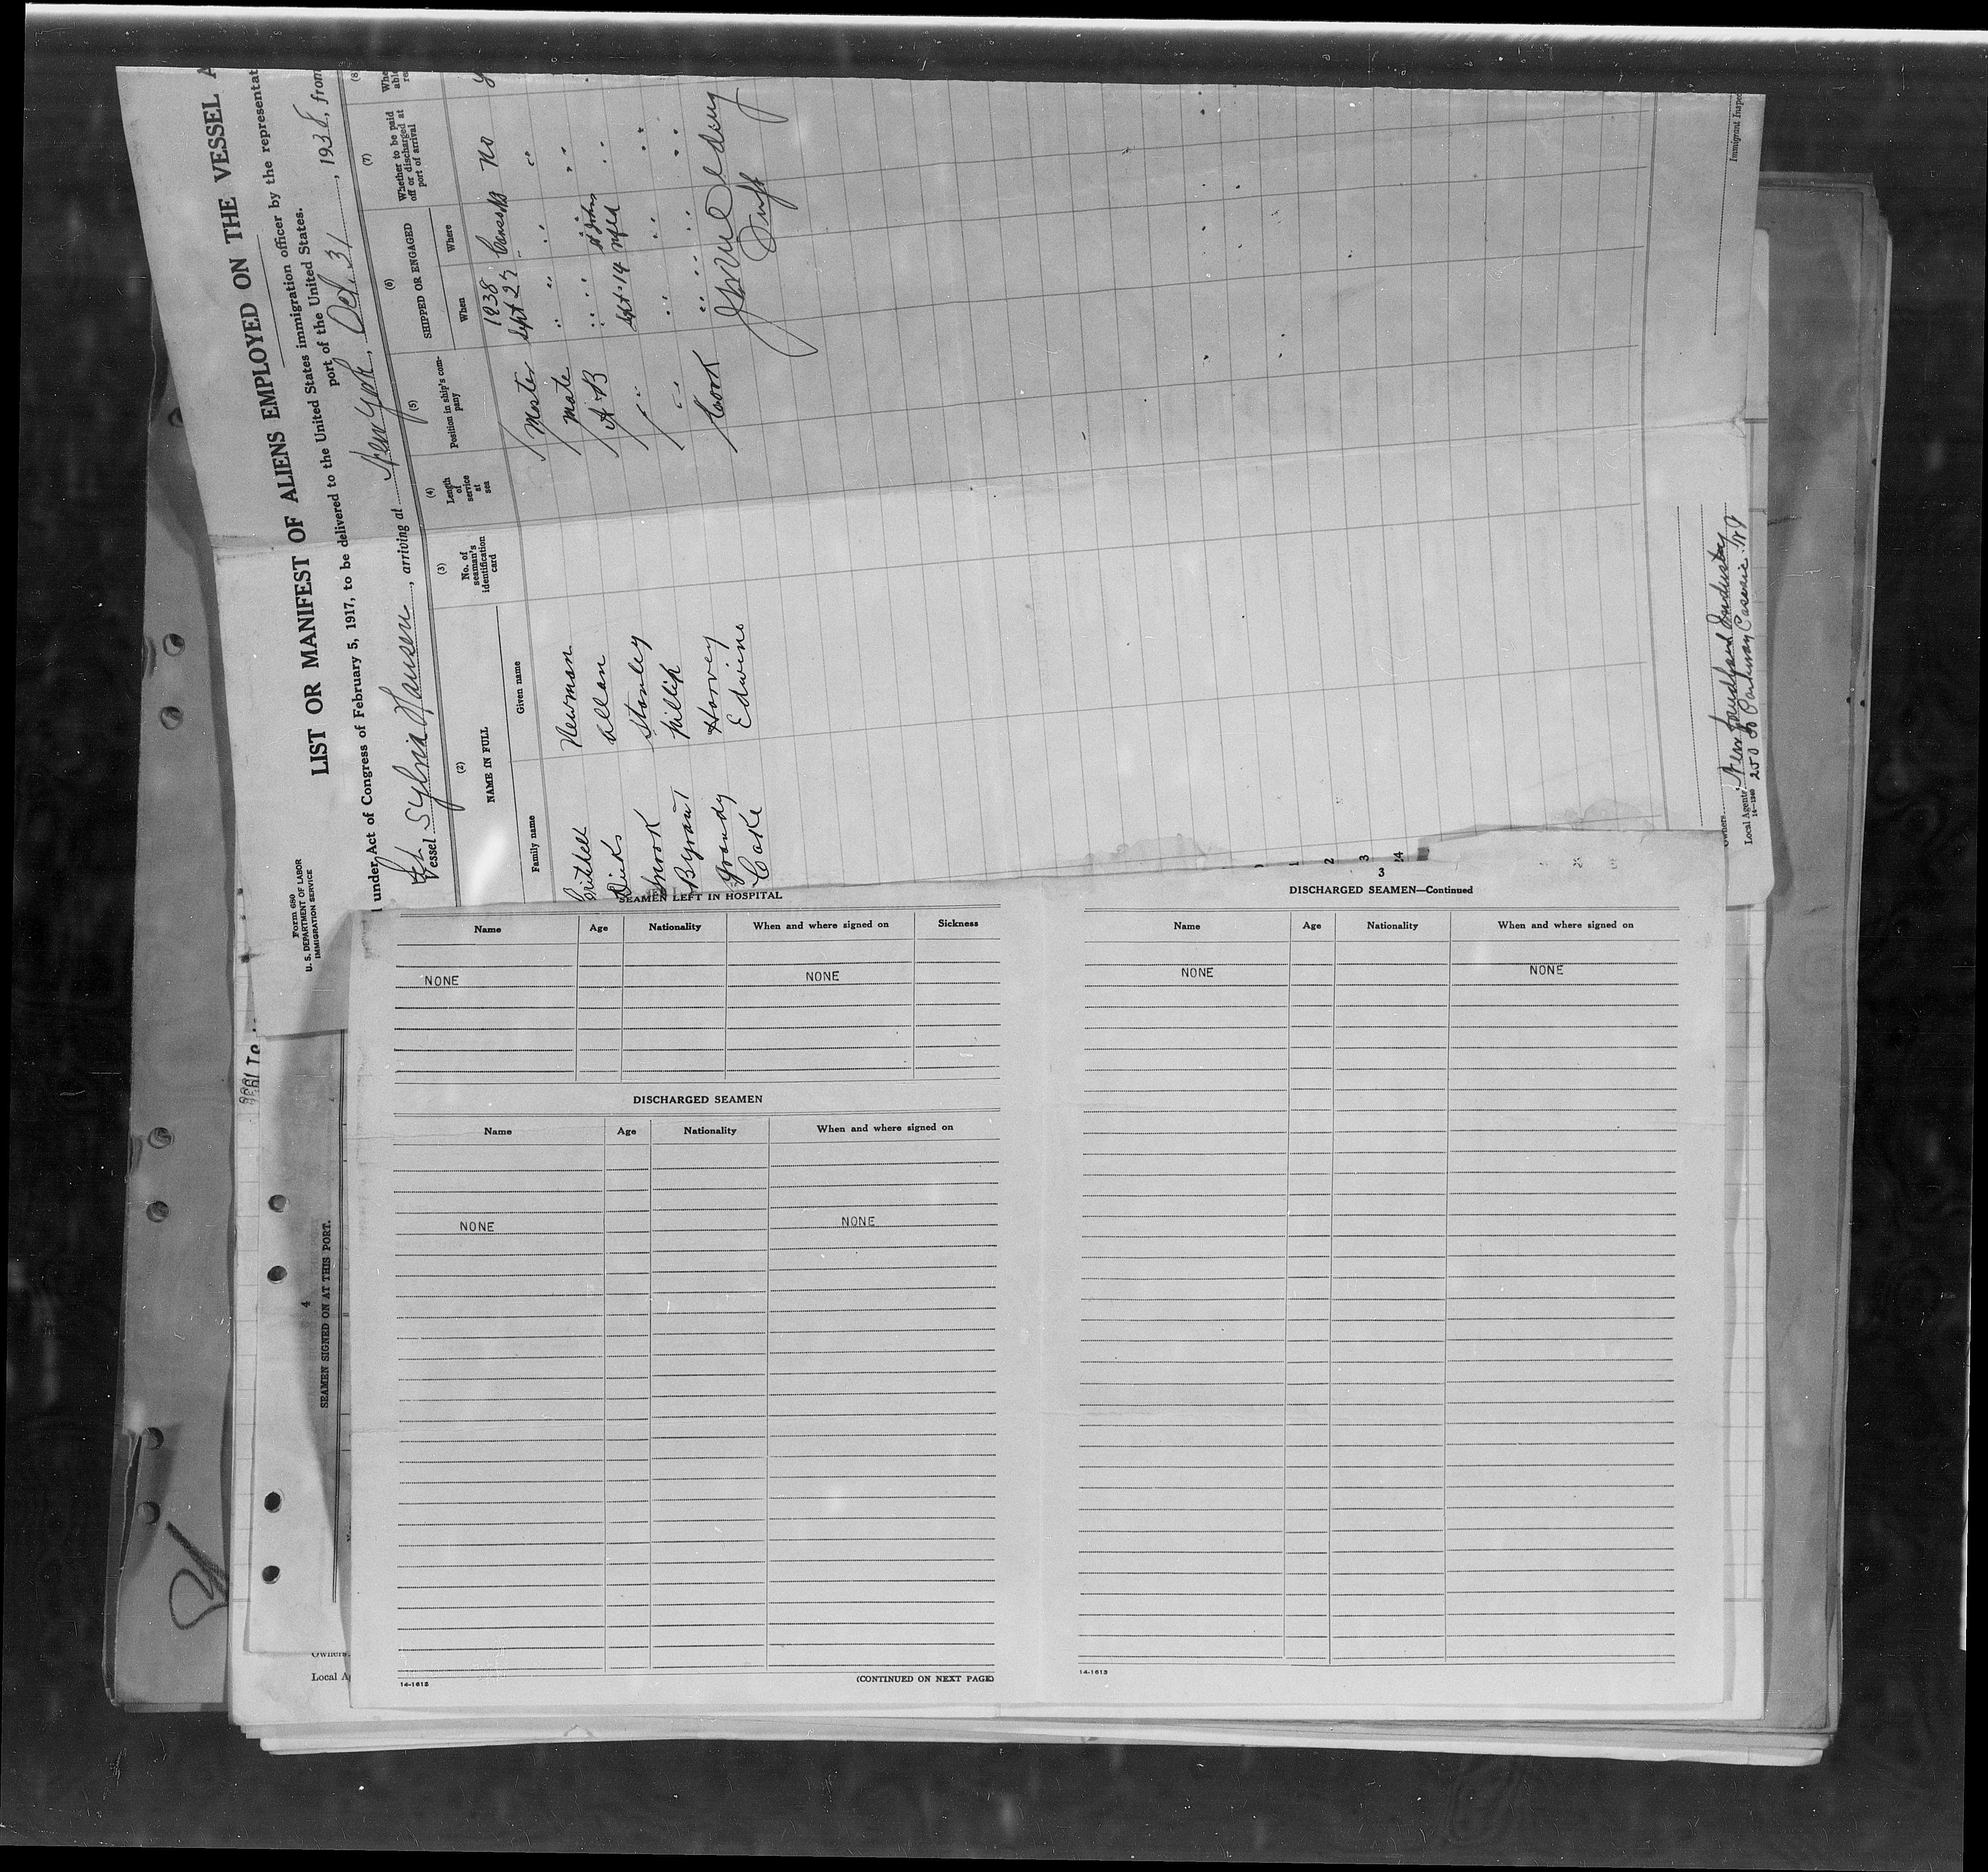 Form 680
U. S. DEPARTMENT OF LABOR
IMMIGRATION SERVICE
LIST OR MANIFEST OF ALIENS EMPLOYED ON THE VESSEL A
under Act of Congress of February 5, 1917, to be delivered to the United States immigration officer by the representat
port of the United States.
Vessel Sylvia Hansen, arriving at New York, Oct. 31, 1938, from
(2) (3) (4) (5) (6) (7) (8)
NAME IN FULL
Family name Given name
No. of seaman's identification card
Length of service at sea
Position in ship's company
SHIPPED OR ENGAGED
When Where
Whether to be paid off or discharged at port of arrival
1938
Newman Master Sept 25 no
Dicks Allan Mate
Snook Stanley A B
Byrant Sept 14 Nfld
Grandy Harvey
Cake Edwine Cook
Immigrant Inspe
Owners
Local Agents
14-1240
1 2 3 24
SEAMEN LEFT IN HOSPITAL
Name Age Nationality When and where signed on Sickness
NONE NONE
DISCHARGED SEAMEN
Name Age Nationality When and where signed on
NONE NONE
14-1612
(CONTINUED ON NEXT PAGE)
3
DISCHARGED SEAMEN—Continued
Name Age Nationality When and where signed on
NONE NONE
14-1613
4
SEAMEN SIGNED ON AT THIS PORT.
Owners
Local Ag